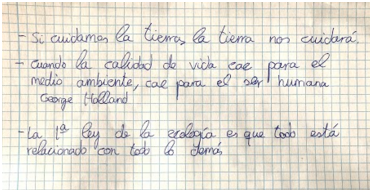 - Si cuidamos la tierra, la tierra nos cuidará.
- cuando la calidad de vida cae para el
medio ambiente, cae para el ser humana
George Holland
- La 1ª ley de la ecología es que todo está
relacionado con todo lo demás